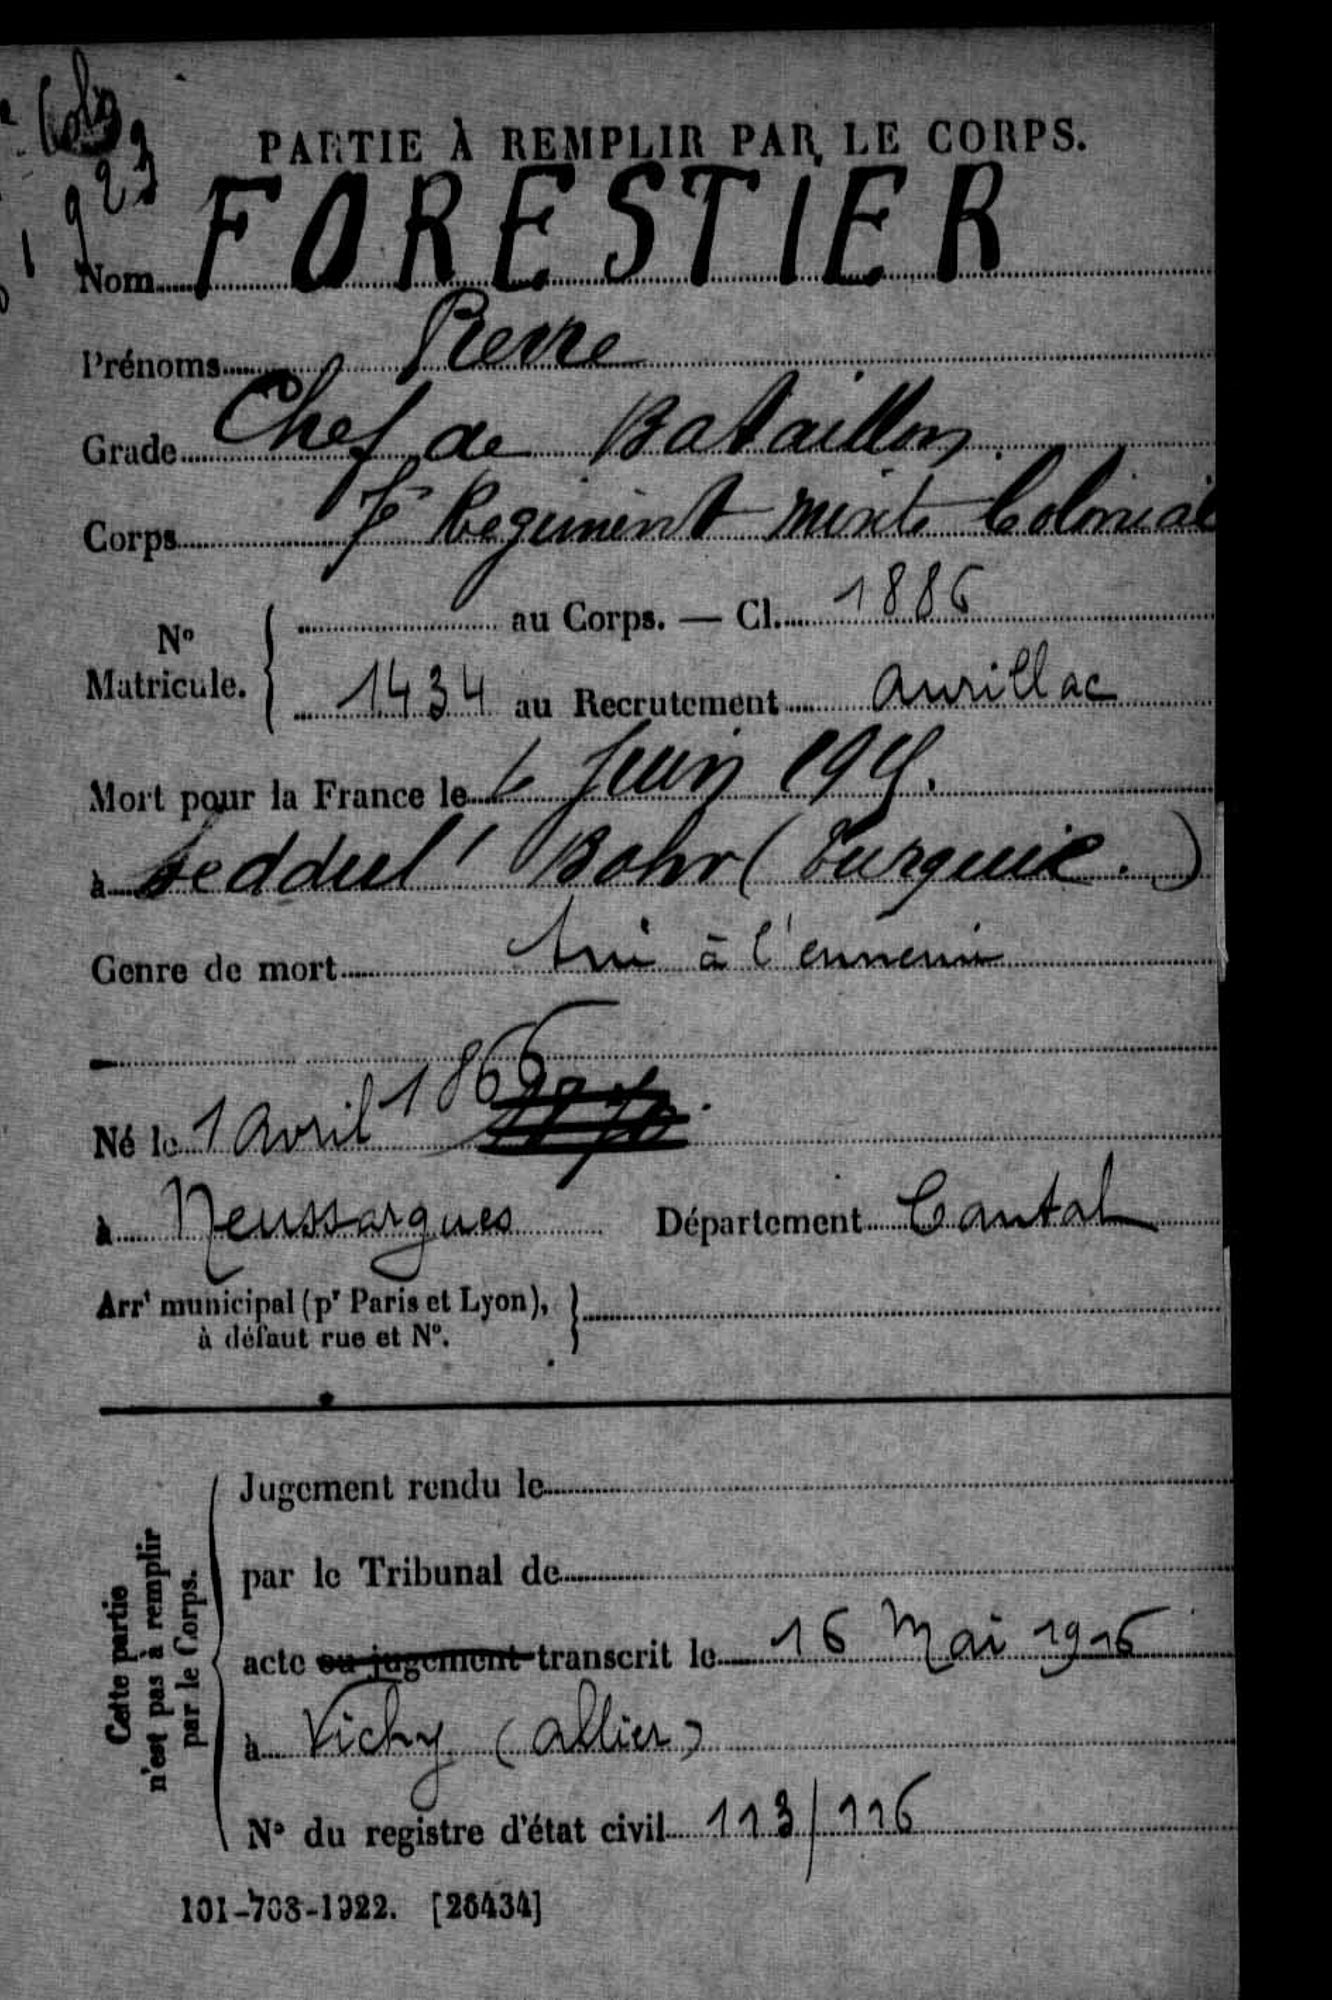 Colo
1923
PARTIE À REMPLIR PAR LE CORPS.
Nom FORESTIER
Prénoms Pierre
Grade Chef de Bataillon
Corps 7e Régiment mixte Colonial
N° Matricule. au Corps. — Cl. 1886
1434 au Recrutement Aurillac
Mort pour la France le 4 Juin 1915.
à Seddul' Bahr (Turquie.)
Genre de mort tué à l'ennemi
Né le 1 Avril 1866
à Neussargues Département Cantal
Arrt municipal (pr Paris et Lyon),
à défaut rue et N°.
Cette partie
n'est pas à remplir
par le Corps.
Jugement rendu le
par le Tribunal de
acte ou jugement transcrit le 16 Mai 1916
à Vichy (Allier)
N° du registre d'état civil 113/116
101-708-1922. [26434]